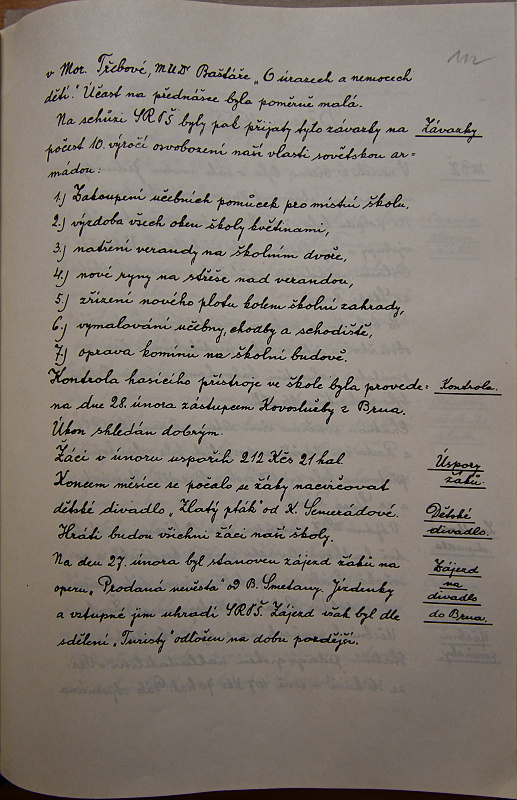 112
v Mor. Třebové, MUDr Baštáře „O úrazech a nemocech
dětí." Účast na přednášce byla poměrně malá.
Na schůzi SRPŠ byly pak přijaty tyto závazky na
Závazky
počest 10. výročí osvobození naší vlasti sovětskou ar-
mádou:
1.) Zakoupení učebních pomůcek pro místní školu,
2.) výzdoba všech oken školy květinami,
3.) natření verandy na školním dvoře,
4.) nové rýny na střeše nad verandou,
5.) zřízení nového plotu kolem školní zahrady,
6.) vymalování učebny, chodby a schodiště,
7.) oprava komínů na školní budově.
Kontrola hasicího přístroje ve škole byla provede-
Kontrola.
na dne 28. února zástupcem Kovoslužby z Brna.
Úkon shledán dobrým.
Žáci v únoru uspořili 212 Kčs 21 hal.
Úspory
žáků.
Koncem měsíce se počalo se žáky nacvičovat
dětské divadlo „Zlatý pták" od K. Semerádové.
Dětské
divadlo.
Hráti budou všichni žáci naší školy.
Na den 27. února byl stanoven zájezd žáků na
Zájezd
na
divadlo
do Brna.
operu „Prodaná nevěsta" od B. Smetany. Jízdenky
a vstupné jim uhradí SRPŠ. Zájezd však byl dle
sdělení „Turisty" odložen na dobu pozdější.